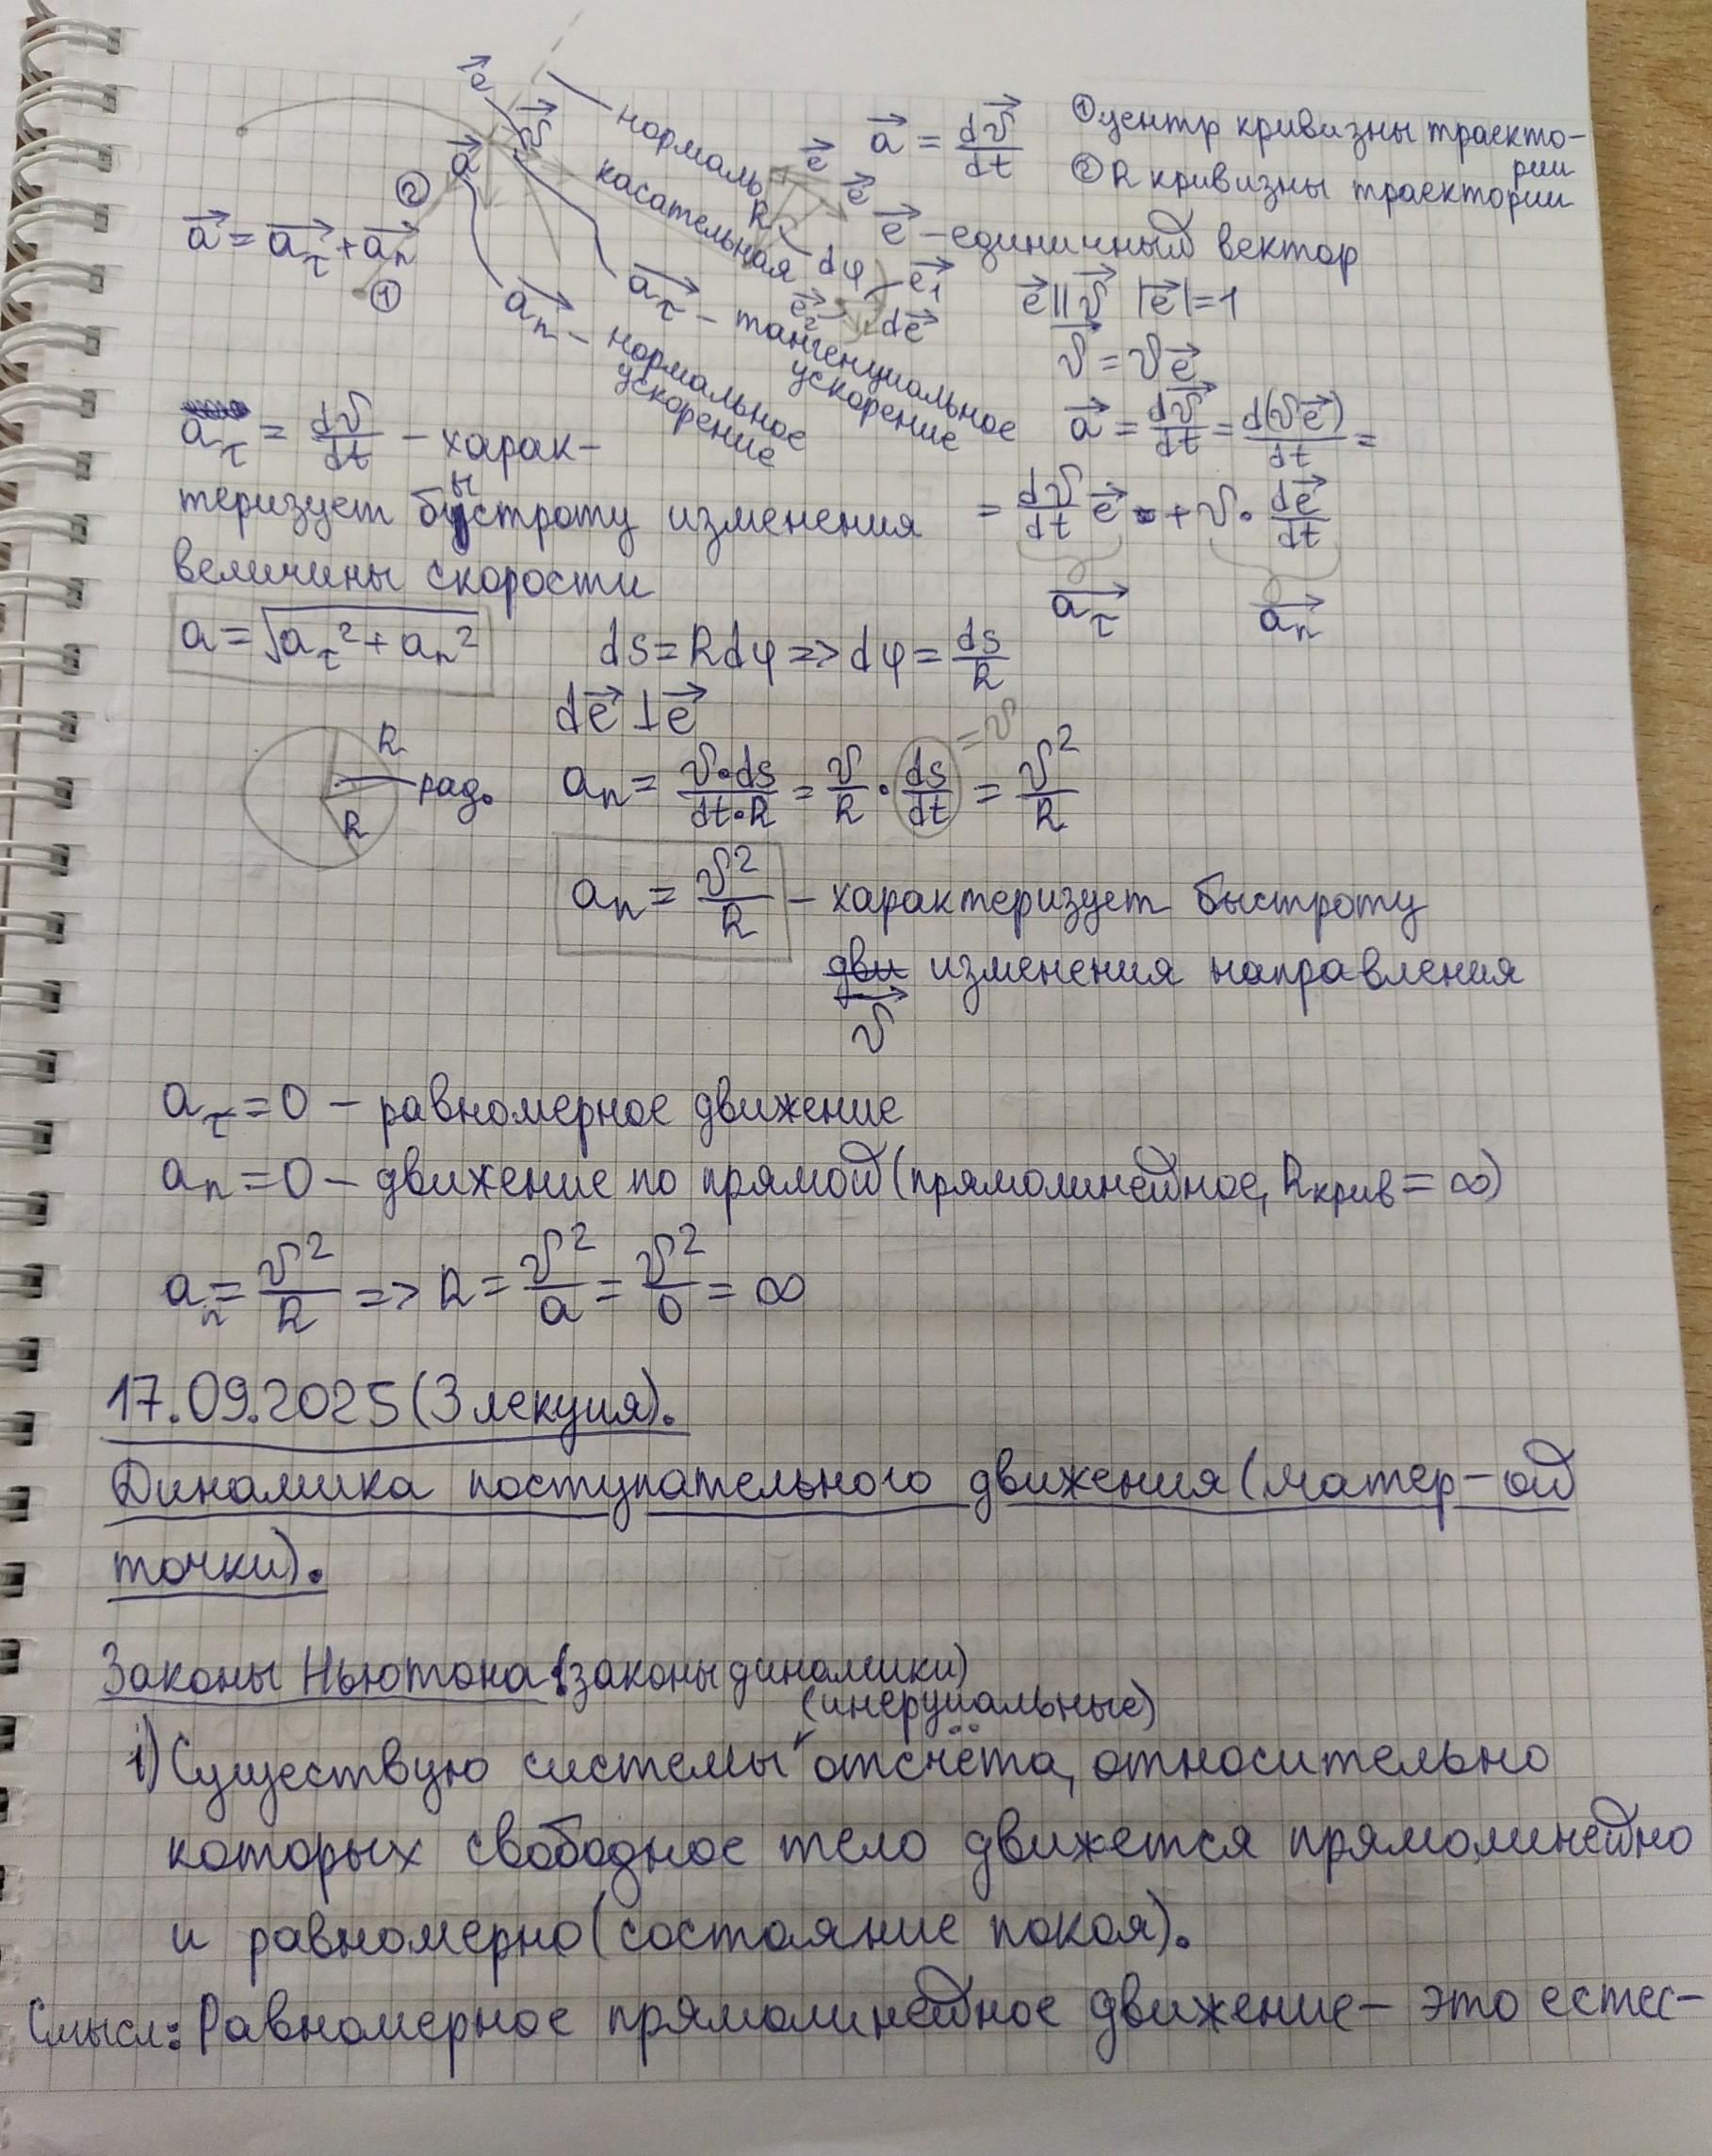 e⃗
v⃗
нормаль
касательная
a⃗
②
①
a⃗ = a⃗τ + a⃗n
a⃗n – нормальное
ускорение
a⃗τ – тангенциальное
ускорение
e⃗
e⃗
R
dφ
e⃗₁
e⃗₂
de⃗
a⃗ = dv⃗/dt
① центр кривизны траекто-
рии
② R кривизны траектории
e⃗ – единичный вектор
e⃗ || v⃗ |e⃗| = 1
v⃗ = ve⃗
a⃗ = dv⃗/dt = d(ve⃗)/dt =
= dv/dt e⃗ + v · de⃗/dt
a⃗τ a⃗n
aτ = dv/dt – харак-
теризует быстроту изменения
величины скорости
a = √(aτ² + an²)
ds = Rdφ => dφ = ds/R
de⃗ ⊥ e⃗
R
R
рад.
an = v·ds/dt·R = v/R · ds/dt = v²/R
= v
an = v²/R – характеризует быстроту
дви изменения направления
v⃗
aτ = 0 – равномерное движение
an = 0 – движение по прямой (прямолинейное, Rкрив = ∞)
an = v²/R => R = v²/a = v²/0 = ∞
17.09.2025 (3 лекция).
Динамика поступательного движения (матер-ой
точки).
Законы Ньютона (законы динамики)
(инерциальные)
1) Существую системы отсчёта, относительно
которых свободное тело движется прямолинейно
и равномерно (состояние покоя).
Смысл: Равномерное прямолинейное движение – это естес-